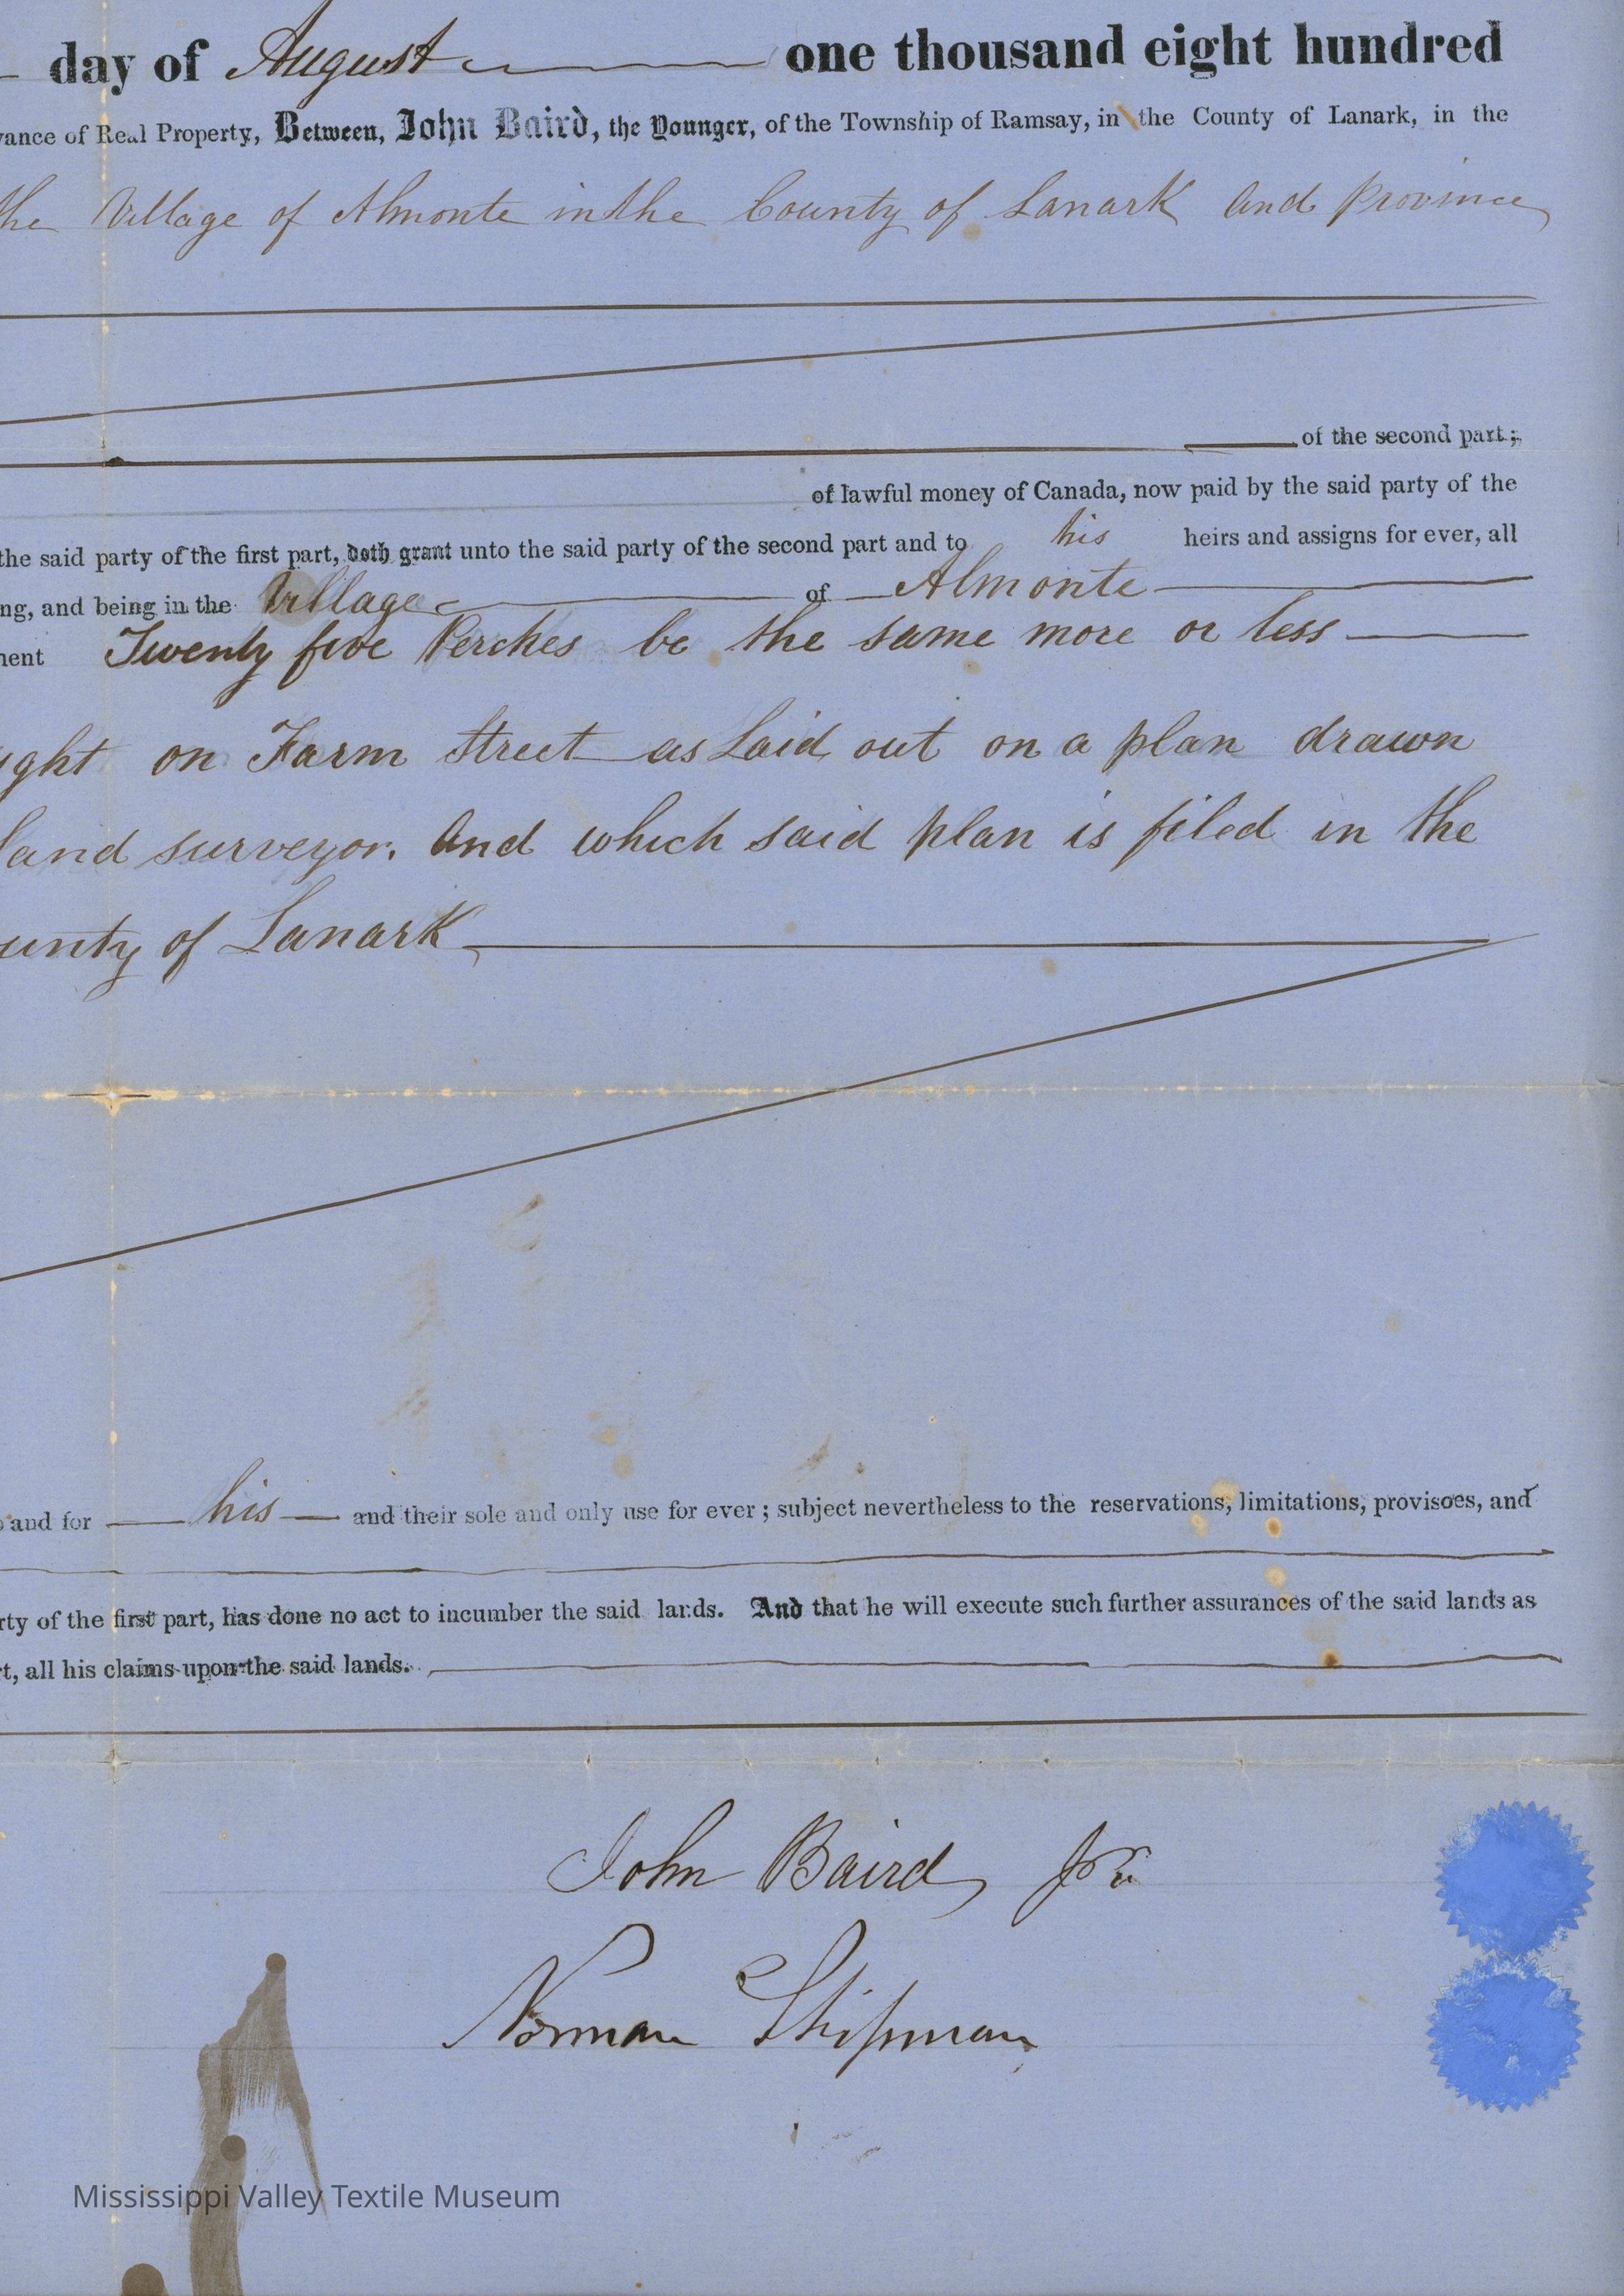 day of August one thousand eight hundred
vance of Real Property, Between, John Baird, the Younger, of the Township of Ramsay, in the County of Lanark, in the
the Village of Almonte in the County of Lanark And Province
of the second part;
of lawful money of Canada, now paid by the said party of the
the said party of the first part, doth grant unto the said party of the second part and to his heirs and assigns for ever, all
ng, and being in the Village of Almonte
ment Twenty five Perches be the same more or less
ght on Farm Street as Laid out on a plan drawn
land surveyor. And which said plan is filed in the
unty of Lanark
and for his and their sole and only use for ever; subject nevertheless to the reservations, limitations, provisoes, and
rty of the first part, has done no act to incumber the said lands. And that he will execute such further assurances of the said lands as
t, all his claims upon the said lands.
John Baird Jr
Norman Shipman
Mississippi Valley Textile Museum